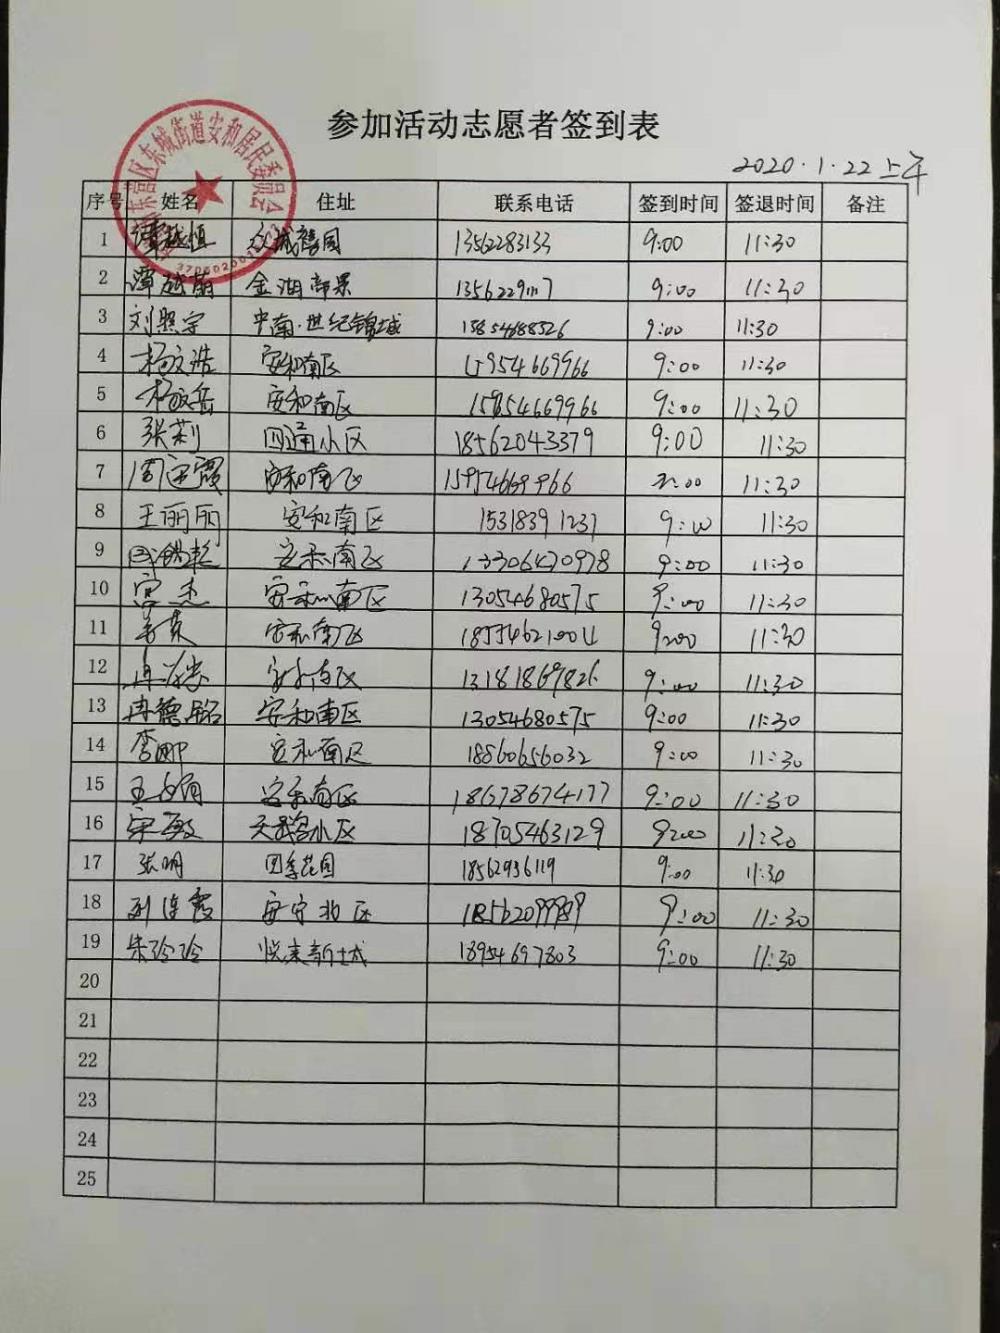 参加活动志愿者签到表
2020.1.22上午
序号 姓名 住址 联系电话 签到时间 签退时间 备注
东营区东城街道安和居民委员会
1 谭越恒 13562283133 9:00 11:30
2 谭越 金湖 1356229 9:00 11:30
3 刘照宇 中南·世纪锦城 15854688526 9:00 11:30
4 杨文浩 安和南区 15954669966 9:00 11:30
5 安和南区 15954669966 9:00 11:30
6 张莉 四通小区 18562043379 9:00 11:30
7 周连霞 安和南区 15954669966 9:00 11:30
8 王丽丽 安和南区 15318391237 9:00 11:30
9 安和南区 13306470978 9:00 11:30
10 宫杰 安和南区 13054680575 9:00 11:30
11 安和南区 9:00 11:30
12 安和南区 13181869826 9:00 11:30
13 冉德铭 安和南区 13054680575 9:00 11:30
14 李娜 安和南区 18860656032 9:00 11:30
15 安和南区 18678674177 9:00 11:30
16 宋敏 小区 18705463129 9:00 11:30
17 张明 四季花园 18562936119 9:00 11:30
18 刘连霞 安宁北区 9:00 11:30
19 朱玲玲 悦来新城 18954697803 9:00 11:30
20
21
22
23
24
25